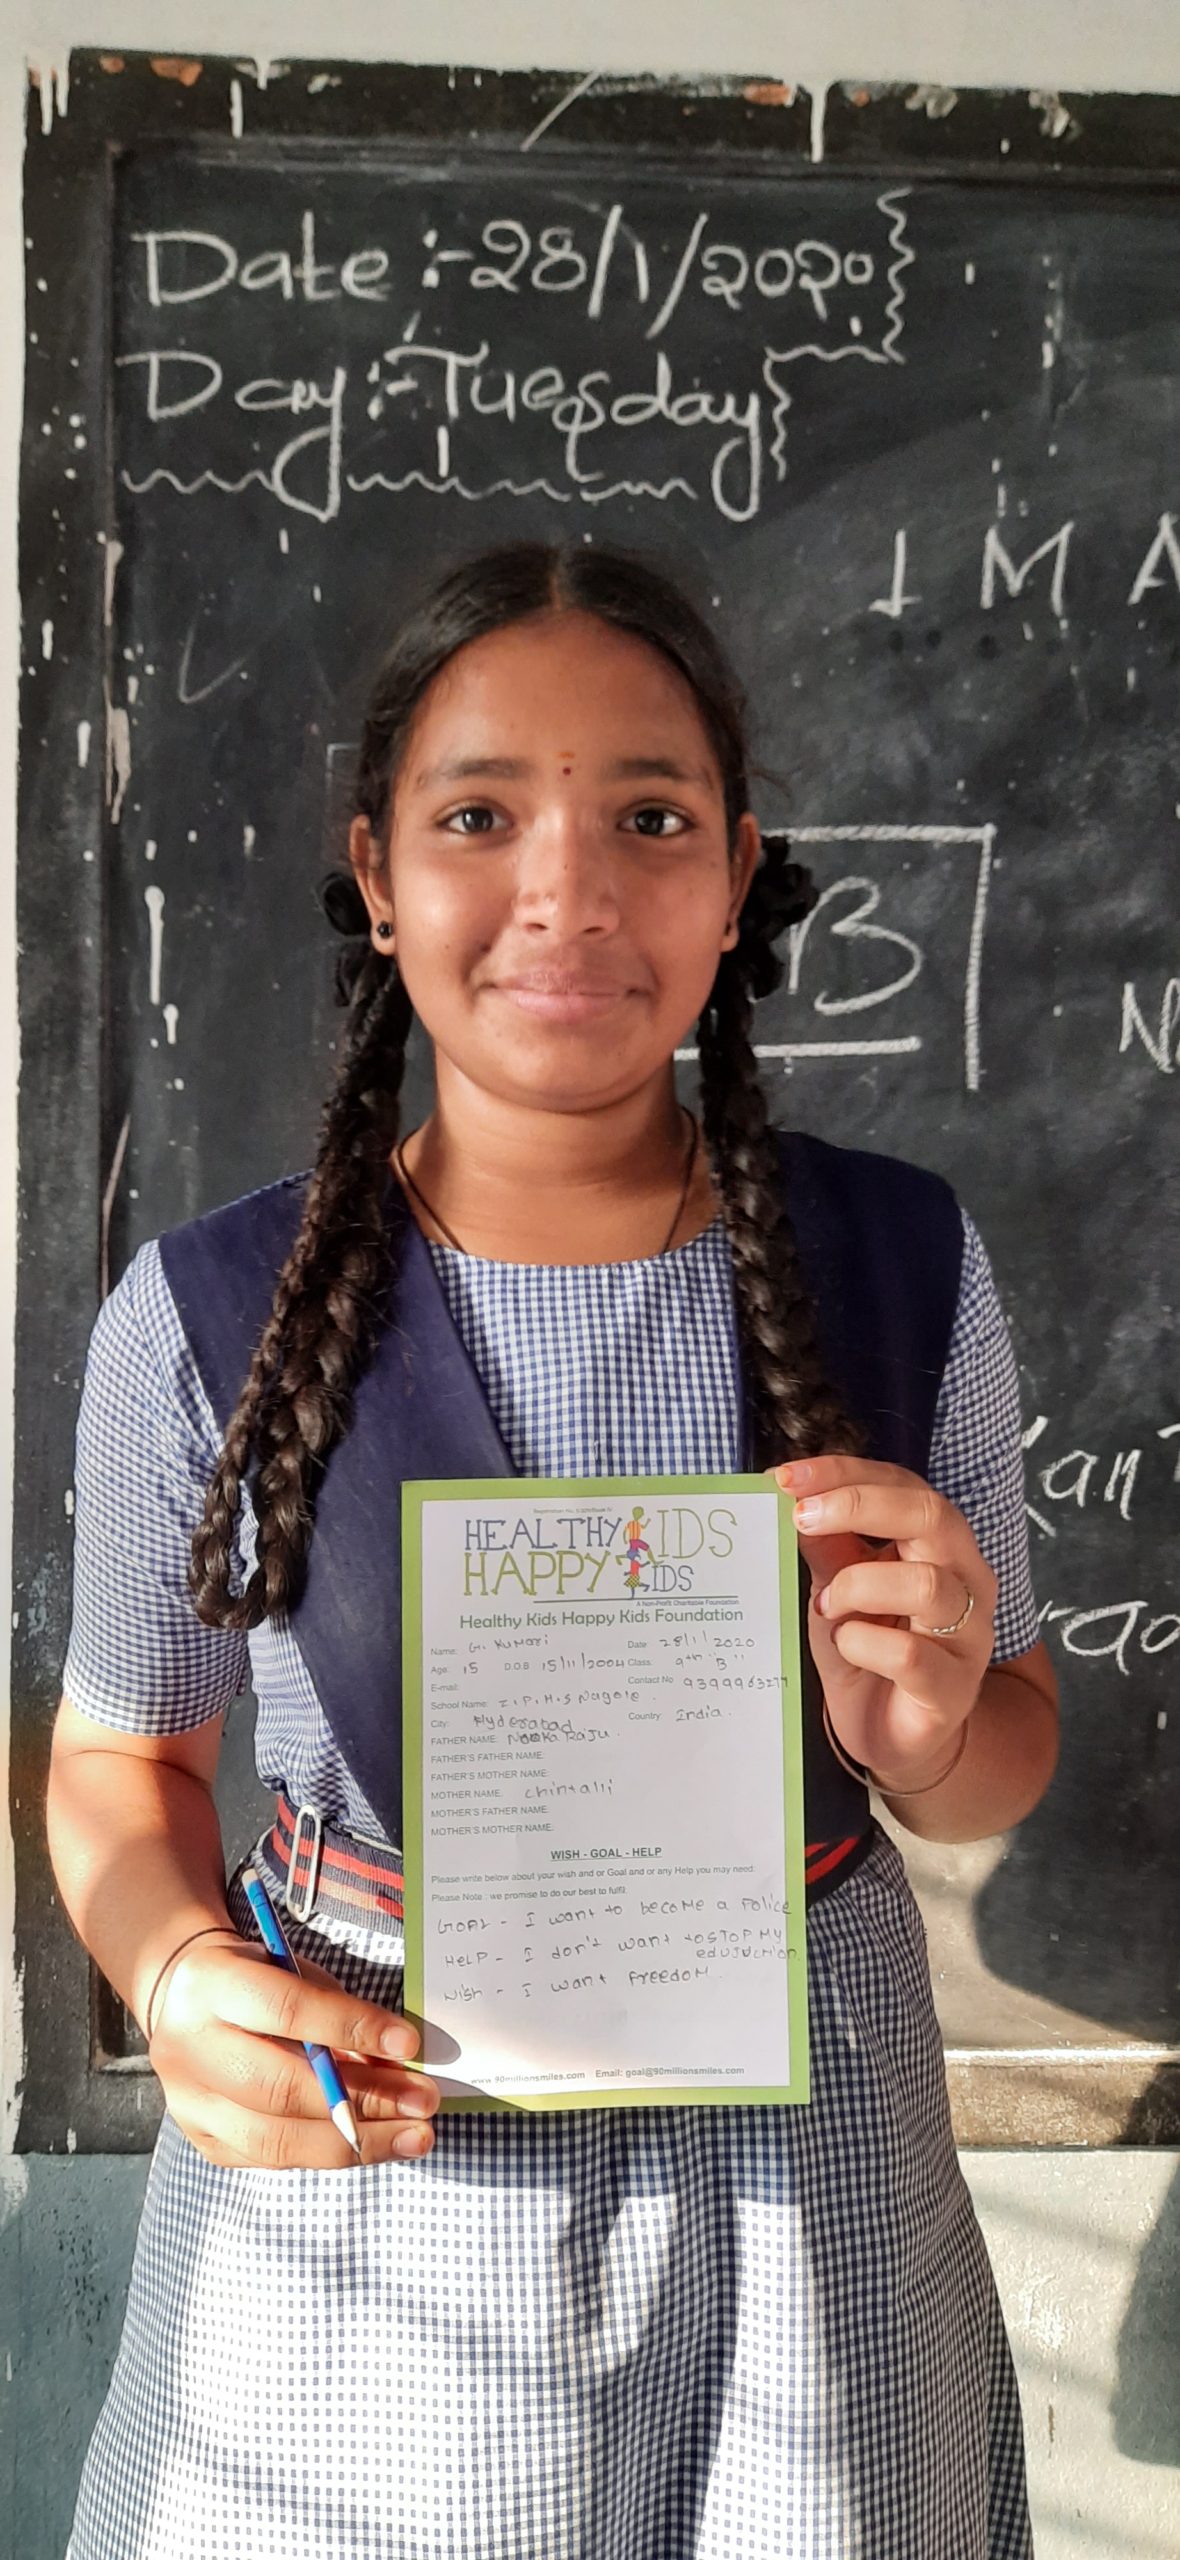 Date :- 28/1/2020
Day :- Tuesday
I M A
B
Kan
HEALTHY KIDS
HAPPY KIDS
A Non-Profit Charitable Foundation
Healthy Kids Happy Kids Foundation
Name: G. Kumari Date: 28/1/2020
Age: 15 D.O.B 15/11/2004 Class: 9th "B"
E-mail: Contact No 9399963277
School Name: Z.P.H.S Nagole.
City: Hyderabad Country: India.
FATHER NAME: Nooka Raju.
FATHER'S FATHER NAME:
FATHER'S MOTHER NAME:
MOTHER NAME: Chintalli
MOTHER'S FATHER NAME:
MOTHER'S MOTHER NAME:
WISH - GOAL - HELP
Please write below about your wish and or Goal and or any Help you may need:
Please Note : we promise to do our best to fulfil:
GOAL - I want to become a Police
HeLP - I don't want to STOP MY
edujuction.
Wish - I want freedom.
www.90millionsmiles.com Email: goal@90millionsmiles.com